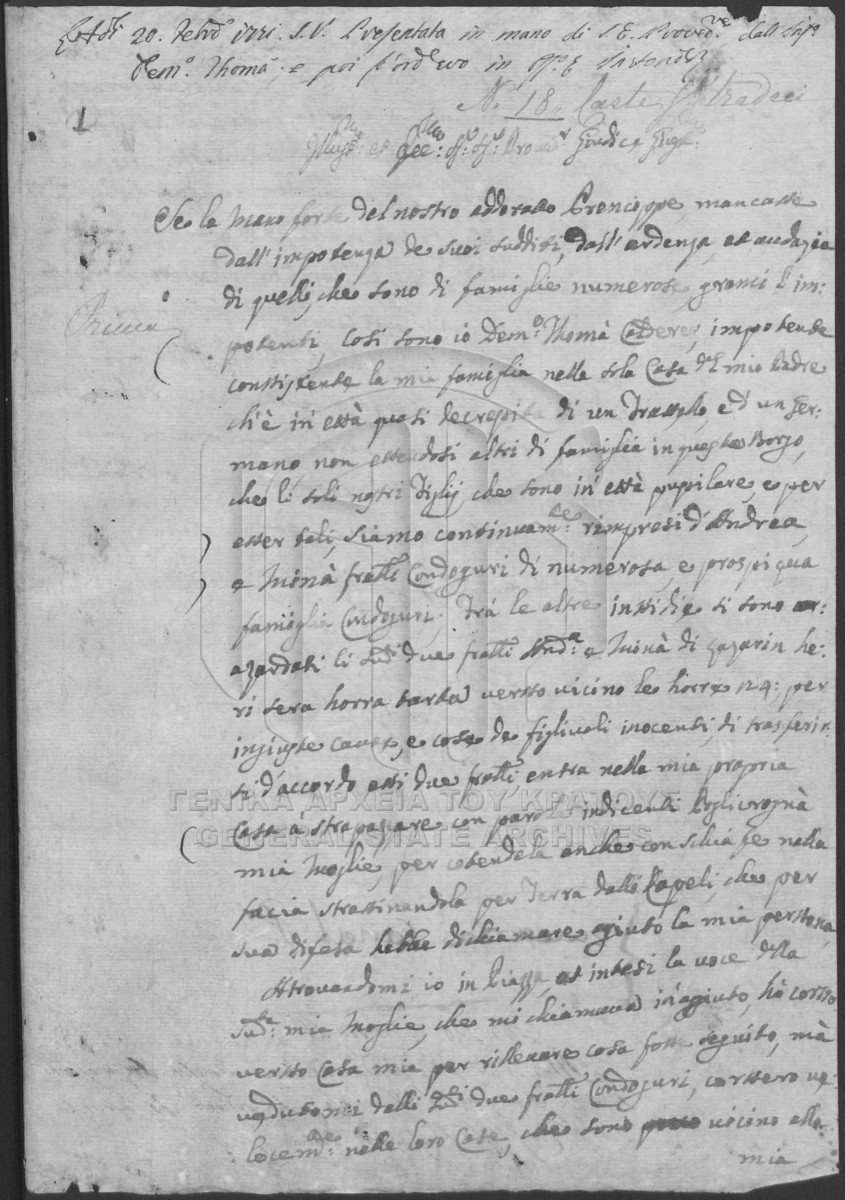 Adi 20. 1721. S.V. Presentata in mano di S.E. Proved.re dall Sig.r
Dem.o Thomà, e poi l'ord. in
N.o 18. Carte
1
Illus.mo et Ecc.mo Giudice
Se la Mano forte del nostro addorato Prencippe, mancasse
dall'impotenza de suoi sudditi, dall'ardenza, et audazia
di quelli, che sono di famiglie numerose, granci l'im:
potenti, Cosi sono io Dem.o Thomà impotente
consistente la mia famiglia nella sola Casa del mio Padre
ch'è in' età quasi decrepita di un Frattello, e d'un Ger:
mano non essendosi altri di famiglia in queste Borgo,
che li soli nostri Figlij che sono in' età pupilare, e per
esser tali, siamo continuam.te rimpresi d'Andrea,
e Minà fratti Condoguri di numerosa, e prospiqua
famiglia Condoguri. Trà le altre inssidie si sono ar:
azardati li sud.i due fratti And.a e Minà di he:
ri sera horra tarda versso vicino le horre per
ingiuste cause, e cose de figlivoli inocenti, di trasferir:
si d'accordo essi due fratti entra nella mia propria
Casa à strapazzare con parole indicenti
ΓΕΝΙΚΑ ΑΡΧΕΙΑ ΤΟΥ ΚΡΑΤΟΥΣ
GENERAL STATE ARCHIVES
mia Moglie, percotendola anche con schiafe nella
facia strassinandola per Terra dalli Capeli, che per
sua difesa hebbe di chiamare agiuto la mia perssona,
Atrovandomi io in Piazza, et intesi la voce della
sud.a mia Moglie, che mi chiamava in'agiuto, hò corsso
versso Casa mia per rillevare cosa fosse seguito, mà
vedutomi dalli sud.i due fratti Condoguri, corssero ve:
locem.te nelle loro Case, che sono vicino alla
mia